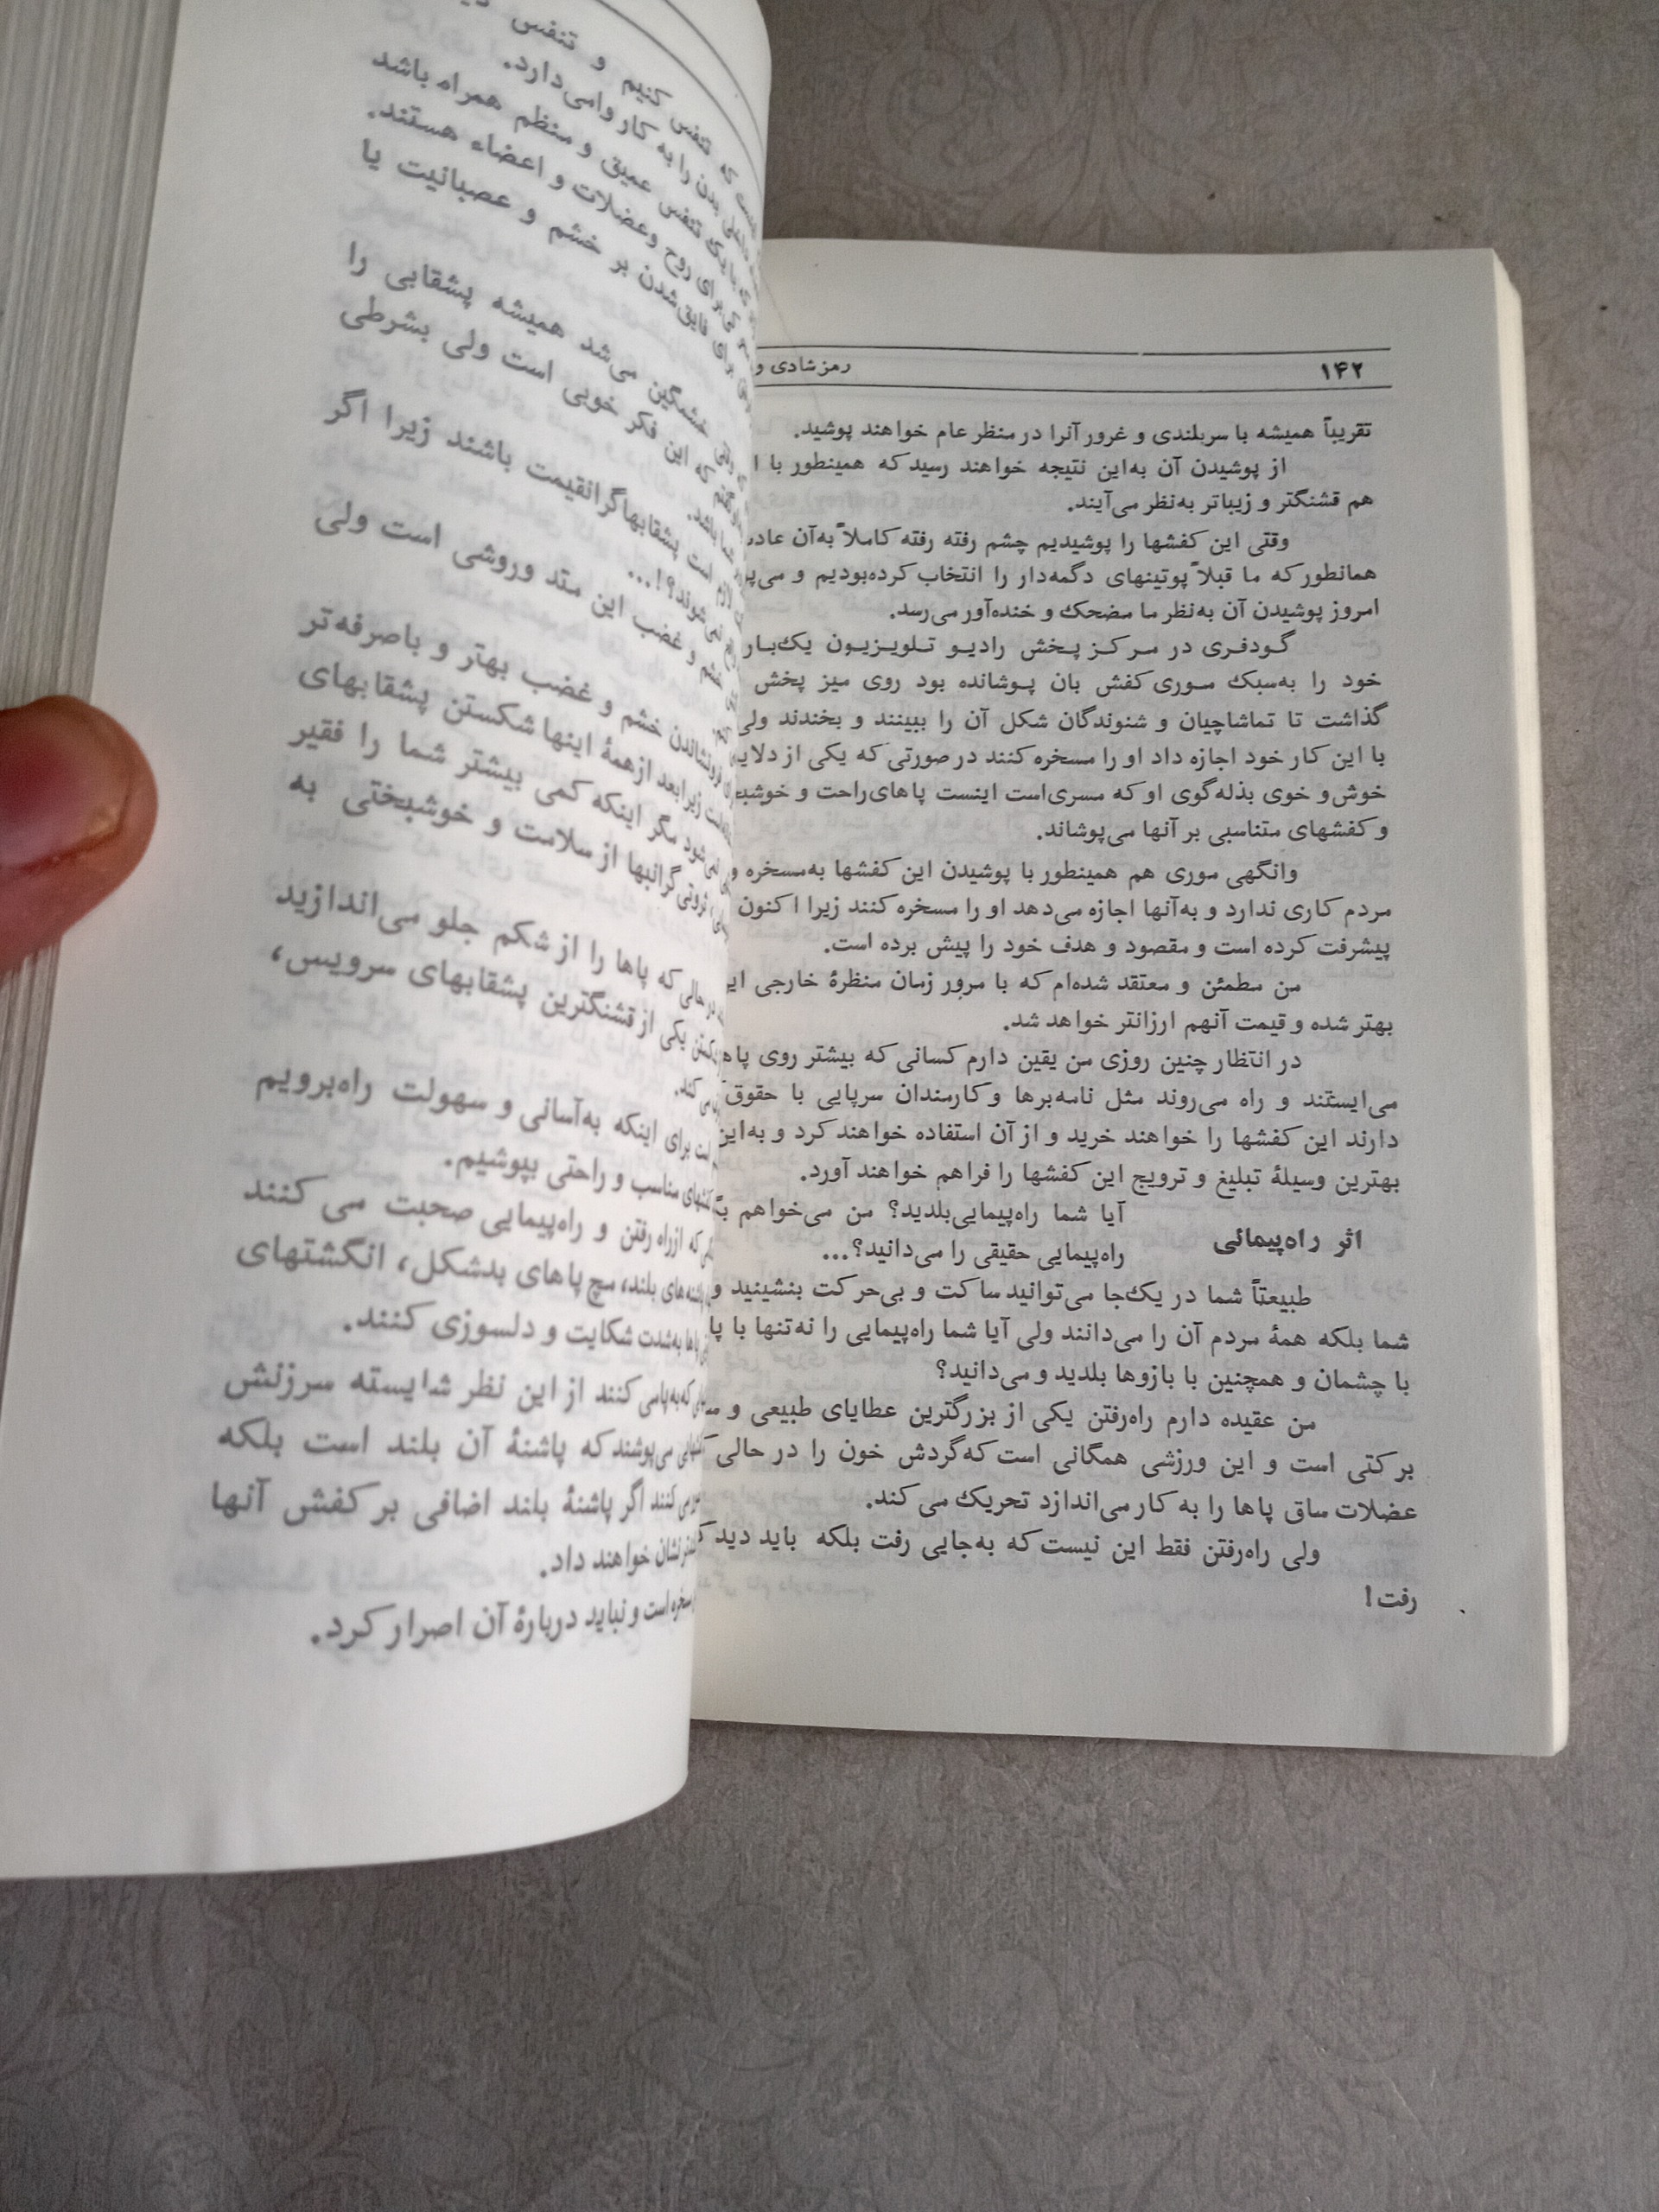 ۱۴۲
رمز شادی و
تقریباً همیشه با سربلندی و غرور آنرا در منظر عام خواهند پوشید.
از پوشیدن آن به‌این نتیجه خواهند رسید که همینطور با
هم قشنگتر و زیباتر به‌نظر می‌آیند.
وقتی این کفشها را پوشیدیم چشم رفته رفته کاملاً به‌آن
همانطور که ما قبلاً پوتینهای دگمه‌دار را انتخاب کرده‌بودیم و
امروز پوشیدن آن به‌نظر ما مضحک و خنده‌آور می‌رسد.
گودفری در مرکز پخش رادیو تلویزیون یک‌بار
خود را به‌سبک موری کفش بان پوشانده بود روی میز پخش
گذاشت تا تماشاچیان و شنوندگان شکل آن را ببینند و بخندند ولی
با این کار خود اجازه داد او را مسخره کنند در صورتی که یکی از
خوش و خوی بذله‌گوی او که مسری‌است اینست پاهای راحت و
و کفشهای متناسبی بر آنها می‌پوشاند.
وانگهی موری هم همینطور با پوشیدن این کفشها به‌مسخره و
مردم کاری ندارد و به‌آنها اجازه می‌دهد او را مسخره کنند زیرا اکنون
پیشرفت کرده است و مقصود و هدف خود را پیش برده است.
من مطمئن و معتقد شده‌ام که با مرور زمان منظرهٔ خارجی
بهتر شده و قیمت آنهم ارزانتر خواهد شد.
در انتظار چنین روزی من یقین دارم کسانی که بیشتر روی
می‌ایستند و راه می‌روند مثل نامه‌برها و کارمندان سرپایی با حقوق
دارند این کفشها را خواهند خرید و از آن استفاده خواهند کرد و به‌این
بهترین وسیلهٔ تبلیغ و ترویج این کفشها را فراهم خواهند آورد.
اثر راه‌پیمائی
آیا شما راه‌پیمایی‌بلدید؟ من می‌خواهم
راه‌پیمایی حقیقی را می‌دانید؟...
طبیعتاً شما در یک‌جا می‌توانید ساکت و بی‌حرکت بنشینید و
شما بلکه همهٔ مردم آن را می‌دانند ولی آیا شما راه‌پیمایی را نه‌تنها با
با چشمان و همچنین با بازوها بلدید و می‌دانید؟
من عقیده دارم راه‌رفتن یکی از بزرگترین عطایای طبیعی و
برکتی است و این ورزشی همگانی است که‌گردش خون را در حالی
عضلات ساق پاها را به کار می‌اندازد تحریک می کند.
ولی راه‌رفتن فقط این نیست که به‌جایی رفت بلکه باید دید
رفت!
کنیم و تنفس
که تنفس
بدن را به کار وامی‌دارد.
تنفس عمیق و منظم همراه باشد
برای روح وعضلات و اعضاء هستند.
برای فایق‌شدن بر خشم و عصبانیت یا
خشمگین می‌شد همیشه پشقابی را
که این فکر خوبی است ولی بشرطی
شما باشد.
لازم است پشقابهاگرانقیمت باشند زیرا اگر
نمی‌شوند؟!...
خشم و غضب این متد وروشی است ولی
فرونشاندن خشم و غضب بهتر و باصرفه‌تر
زیرابعد ازهمهٔ اینها شکستن پشقابهای
نمی‌شود مگر اینکه کمی بیشتر شما را فقیر
ثروتی گرانبها از سلامت و خوشبختی به
در حالی که پاها را از شکم جلو می‌اندازید
یکی از قشنگترین پشقابهای سرویس،
کند.
برای اینکه به‌آسانی و سهولت راه‌برویم
کفشهای مناسب و راحتی بپوشیم.
که ازراه رفتن و راه‌پیمایی صحبت می کنند
پاشنه‌های بلند، مچ پاهای بدشکل، انگشتهای
پاها به‌شدت شکایت و دلسوزی کنند.
از این نظر شایسته سرزنش
می‌پوشندکه پاشنهٔ آن بلند است بلکه
می‌کنند اگر پاشنهٔ بلند اضافی بر کفش آنها
نشان خواهند داد.
مسخره است و نباید دربارهٔ آن اصرار کرد.